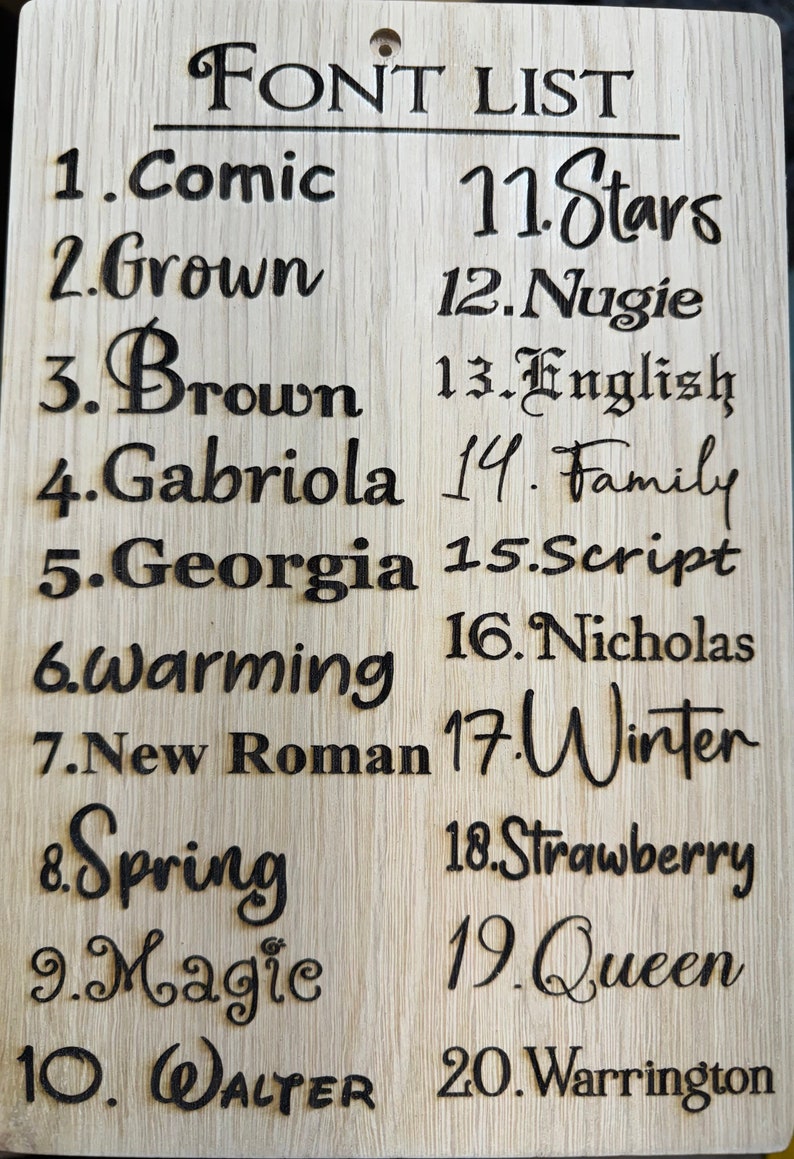 FONT LIST
1.Comic
2.Grown
3.Brown
4.Gabriola
5.Georgia
6.Warming
7.New Roman
8.Spring
9.Magic
10. WALTER
11.Stars
12.Nugie
13.English
14. Family
15.Script
16.Nicholas
17.Winter
18.Strawberry
19.Queen
20.Warrington